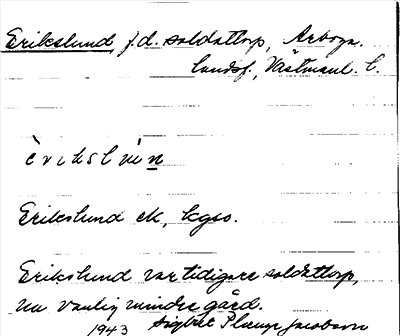 Erikslund, f.d. soldattorp, Arboga
landsf., Västmanl. l.
Erikslund ek, kgso.
Erikslund var tidigare soldattorp,
nu vanlig mindre gård.
1943 Sigbrit Plænge Jacobson